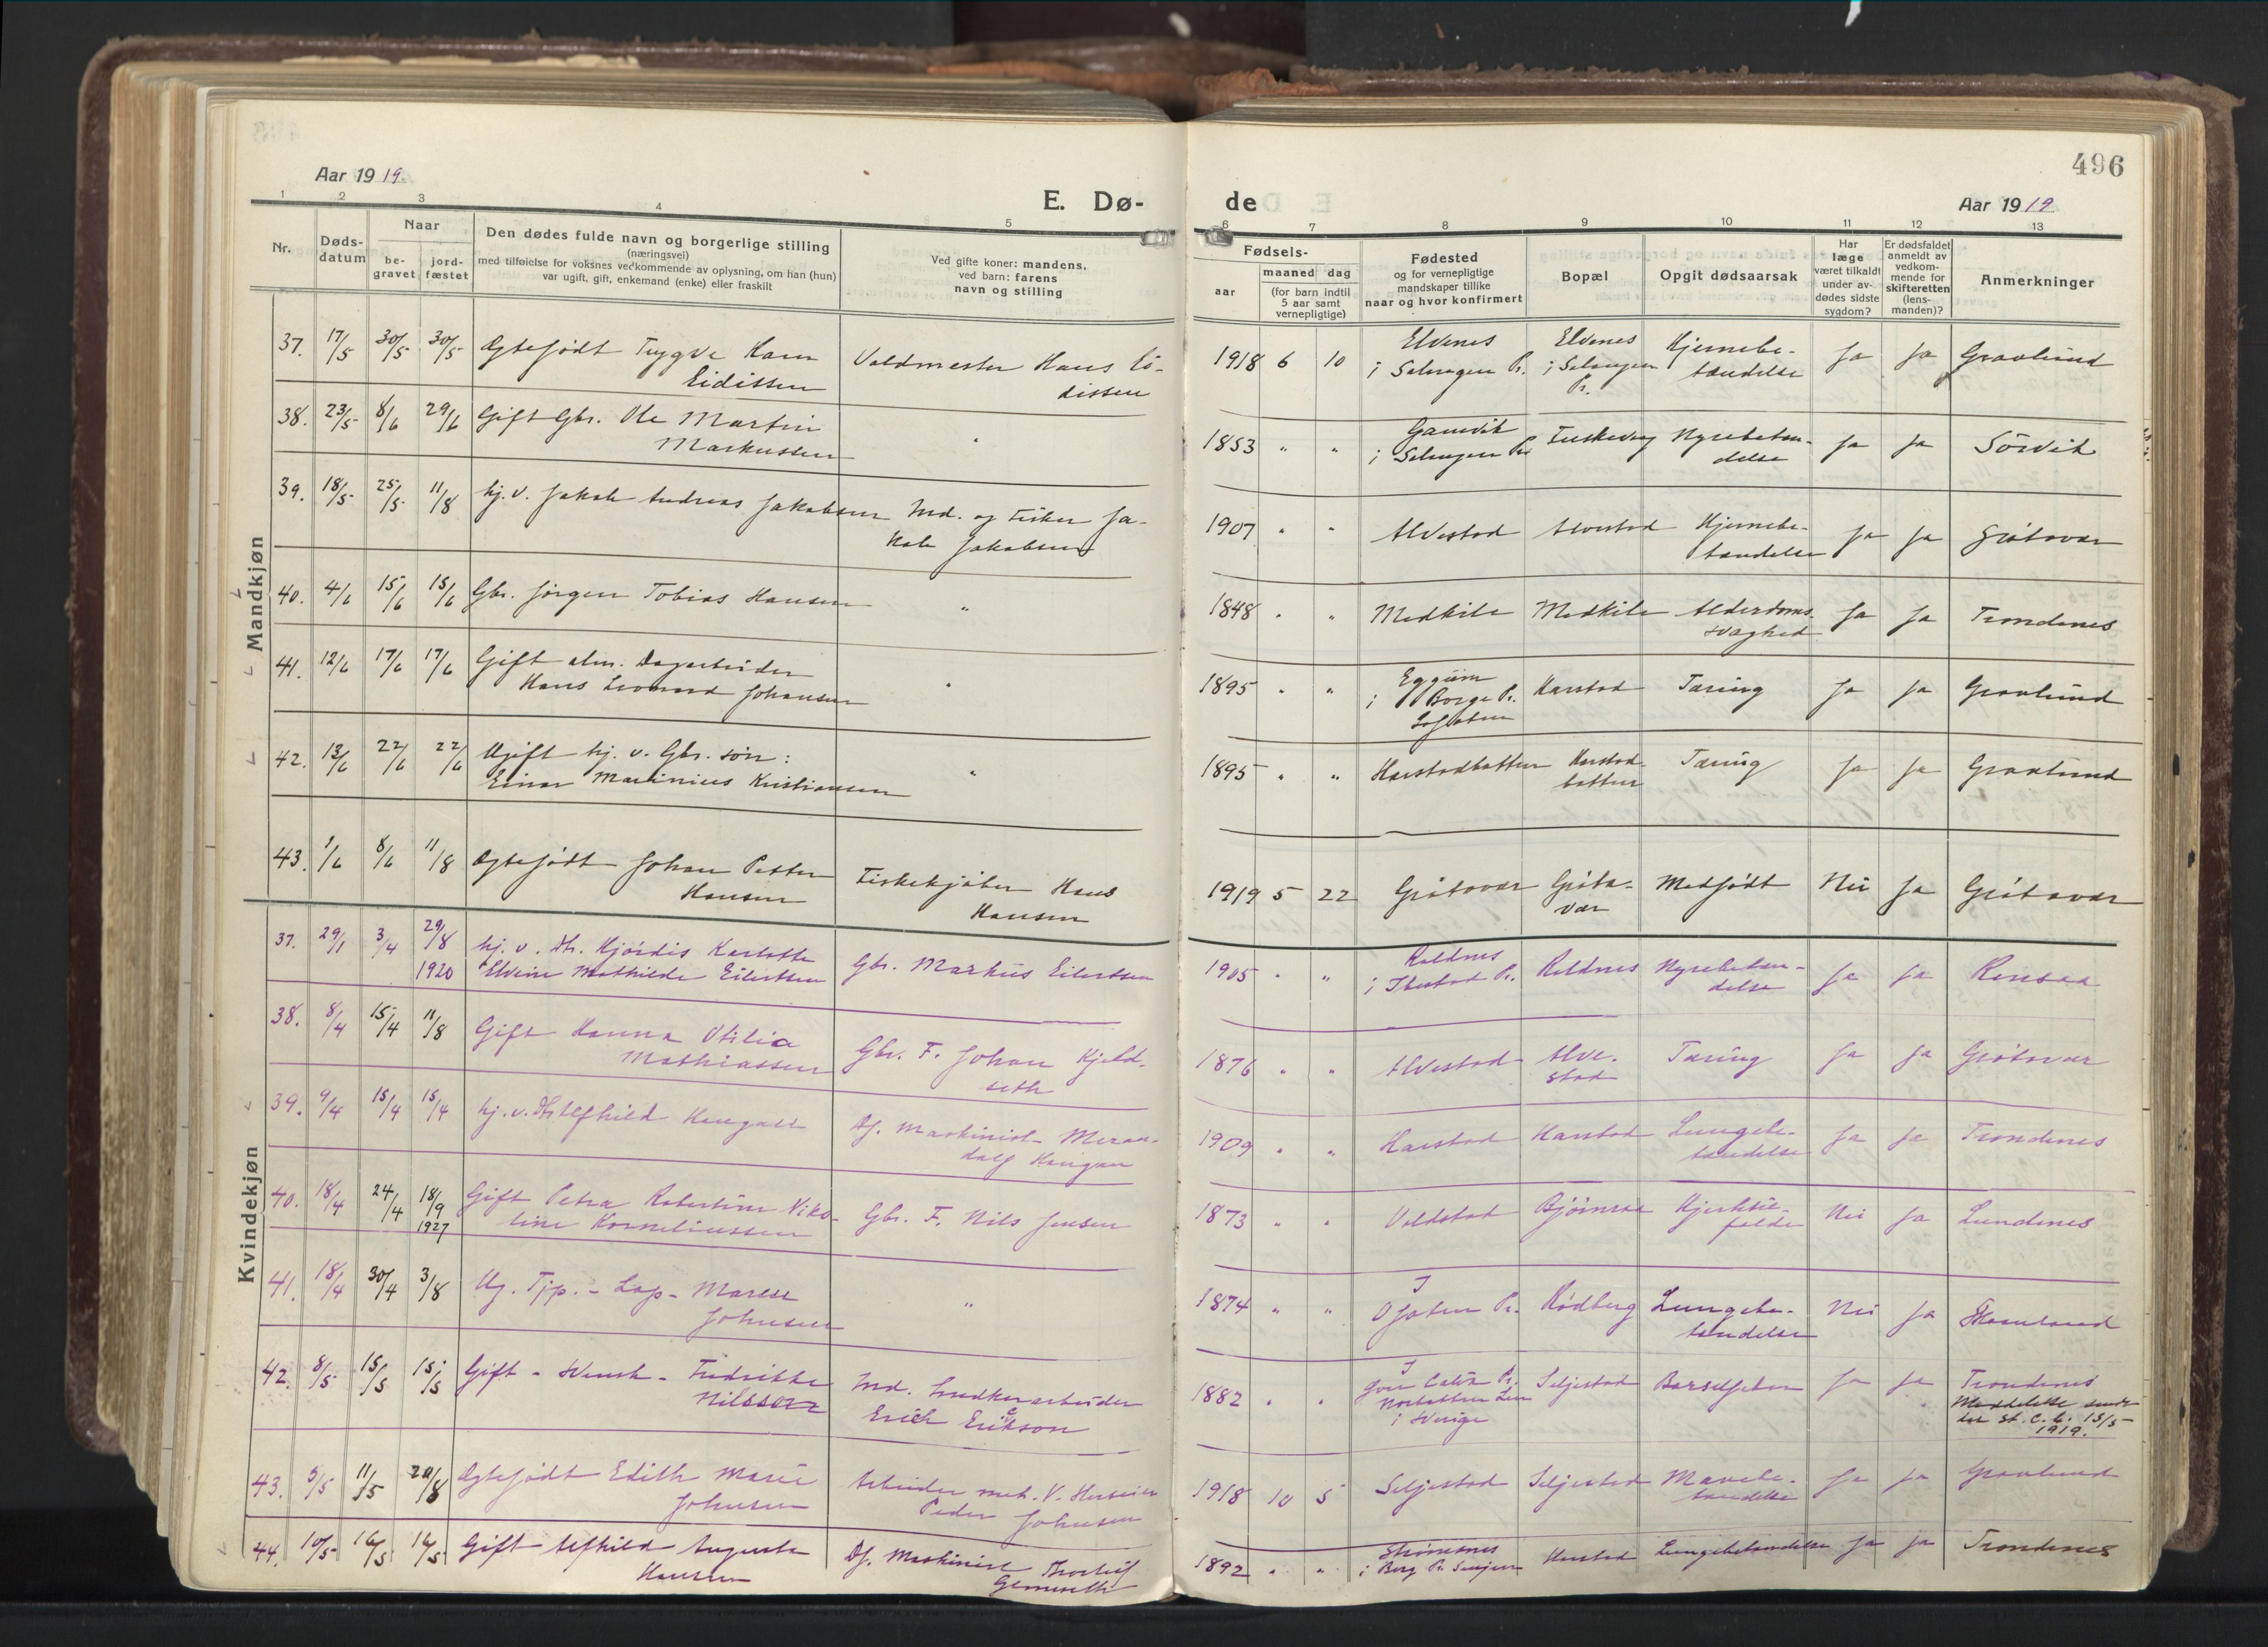 496
Aar 1919
E. Dø-
de
Aar 1919
1 2 3 4 5 6 7 8 9 10 11 12 13
Nr.
Døds-
datum
Naar
be-
gravet
jord-
fæstet
Den dødes fulde navn og borgerlige stilling
(næringsvei)
med tilføielse for voksnes vedkommende av oplysning, om han (hun)
var ugift, gift, enkemand (enke) eller fraskilt
Ved gifte koner: mandens,
ved barn: farens
navn og stilling
Fødsels-
aar
maaned dag
(for barn indtil
5 aar samt
vernepligtige)
Fødested
og for vernepligtige
mandskaper tillike
naar og hvor konfirmert
Bopæl
Opgit dødsaarsak
Har
læge
været tilkaldt
under av-
dødes sidste
sygdom?
Er dødsfaldet
anmeldt av
vedkom-
mende for
skifteretten
(lens-
manden)?
Anmerkninger
Mandkjøn
37. 17/5 30/5 30/5 Ægtefødt Trygve Karn
Eidissen
Valdmester Hans Ei-
dissen
1918 6 10
Elvenes
i Salangen Pr.
Elvenes
i Salangen
Pr.
Hjernebe-
tændelse
Ja Ja Gravlund
38. 23/5 8/6 29/6 Gift Gbr. Ole Martin
Markussen
"
1853 " "
Gamvik
i Salangen Pr.
Fuskevaag
Nyrebetæn-
delse
Ja Ja Sörvik
39. 18/5 25/5 11/8 hj. v. Jakob Andreas Jakobsen
Ind. og Fisker Ja-
kob Jakobsen
1907 " "
Alvestad Alvestad
Hjernebe-
tændelse
Ja Ja Grötavær
40. 4/6 15/6 15/6 Gbr. Jörgen Tobias Hansen
"
1848 " "
Medkile Medkile
Alderdoms-
svaghed
Ja Ja Trondenes
41. 12/6 17/6 17/6 Gift alm. Dagarbeider
Hans Leonard Johansen
"
1895 " "
Eggum
i Borge Pr.
Lofoten
Harstad Tæring Ja Ja Gravlund
42. 13/6 22/6 22/6 Ugift hj. v. Gbr. sön:
Einar Marinius Kristiansen
"
1895 " "
Harstadbotten
Harstad-
botten
Tæring Ja Ja Gravlund
43. 1/6 8/6 11/8 Ægtefödt Johan Petter
Hansen
Fiskekjöber Hans
Hansen
1919 5 22
Grötavær
Gröta-
vær
Medfödt Nei Ja Grötavær
Kvindekjøn
37. 29/1 3/4 29/8
1920
hj. v. Dtr. Hjördis Karlotte
Elvine Mathilde Eilertsen
Gbr. Markus Eilertsen
1905 " "
Roldnes
i Ibestad Pr.
Roldnes
Nyrebetæn-
delse
Ja Ja Rensaa
38. 8/4 15/4 11/8 Gift Hanna Otilia
Mathiassen
Gbr. F. Johan Kjeld-
seth
1876 " "
Alvestad
Alve-
stad
Tæring Ja Ja Grötavær
39. 9/4 15/4 15/4 hj. v. Dtr. Alfhild Haugan
Df. Maskinist Meran-
dalf Haugan
1909 " "
Harstad Harstad
Lungebe-
tændelse
Ja Ja Trondenes
40. 18/4 24/4 18/9
1927
Gift Petra Robertine Niko-
line Korneliussen
Gbr. F. Nils Jensen
1873 " "
Voldstad Björnraa
Hjertetil-
fælde
Nei Ja Lundenes
41. 18/4 30/4 3/8 Ug. Tjp. - Lap - Maren
Johnsen
"
1874 " "
I
Ofoten Pr.
Rödberg
Lungebe-
tændelse
Nei Ja Skaanland
42. 8/5 15/5 15/5 Gift - svensk - Fredrikke
Nilsson
Ind. Snedkerarbeider
Erich Erikson
1882 " "
I
Pr.
Norbotten Len
i Sverige
Seljestad Barselfeber Ja Ja
Trondenes
Meddelelse sendt
St. C. b. 15/5-
1919.
43. 5/5 11/5 20/8 Ægtefödt Edith Marie
Johnsen
Arbeider mek. V.
Peder Johnsen
1918 10 5
Seljestad Seljestad
Mavebe-
tændelse
Ja Ja Gravlund
44. 10/5 16/5 16/5 Gift Alfhild Augusta
Hansen
Df. Maskinist Thorleif
1892 " "
Strömsnes
i Berg Pr. Senjen
Harstad Lungebetændelse Ja Ja Trondenes